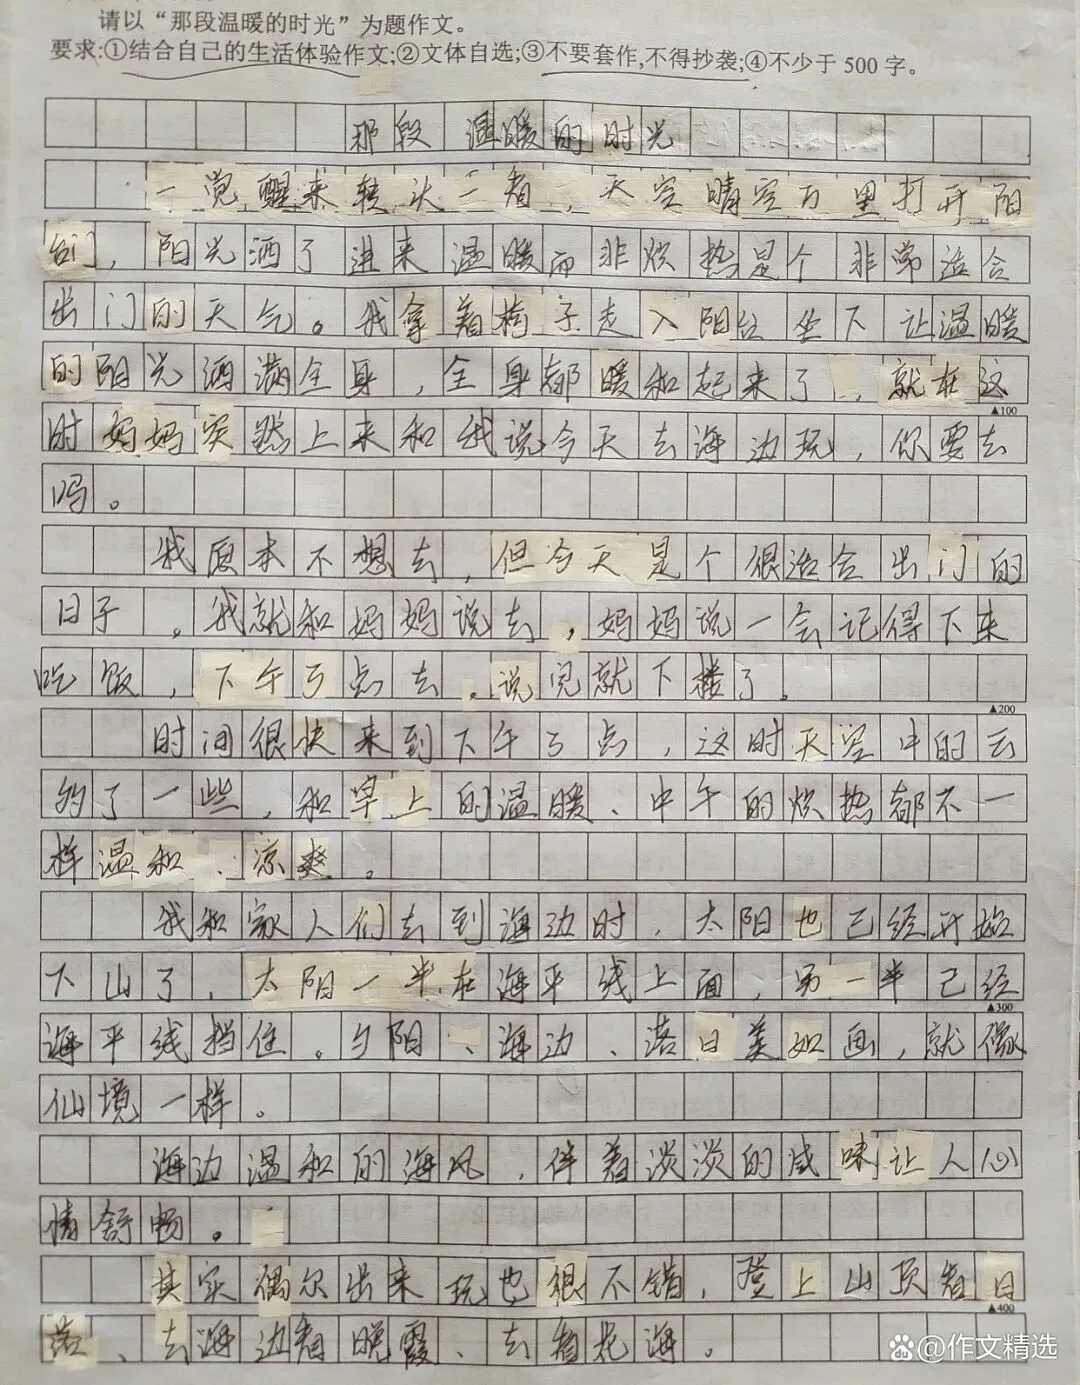 请以“那段温暖的时光”为题作文。
要求:①结合自己的生活体验作文;②文体自选;③不要套作,不得抄袭;④不少于 500 字。
那段 温暖的时光
一觉醒来转头一看,天空晴空万里打开阳
台门,阳光洒了进来温暖而非炊热是个非常适合
出门的天气。我拿着椅子走入阳台坐下让温暖
的阳光洒满全身,全身都暖和起来了,就在这
▲100
时妈妈突然上来和我说今天去海边玩,你要去
吗。
我原本不想去,但今天是个很适合出门的
日子。我就和妈妈说去,妈妈说一会记得下来
吃饭,下午5点去。说完就下楼了。
▲200
时间很快来到下午5点,这时天空中的云
约了一些,和早上的温暖、中午的炊热都不一
样温和、凉爽。
我和家人们去到海边时,太阳也已经开始
下山了,太阳一半在海平线上面,另一半已经
▲300
海平线挡住。夕阳、海边、落日美如画,就像
仙境一样。
海边温和的海风,伴着淡淡的咸味让人心
情舒畅。
其实偶尔出来玩也很不错,登上山顶看日
▲400
落、去海边看晚霞、去看花海。
Baidu @作文精选